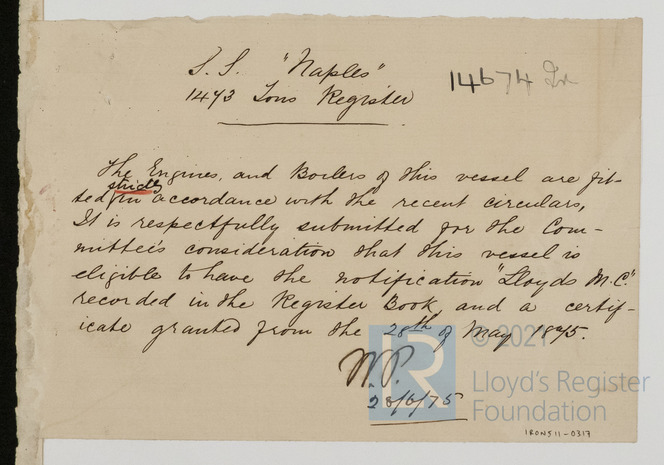 S. S. "Naples"
1473 Tons Register
14674 Irn
The Engines, and Boilers of this vessel are fit-
strictly
ted in accordance with the recent circulars,
It is respectfully submitted for the Com-
mittee's consideration that this vessel is
eligible to have the notification "Lloyds M.C."
recorded in the Register Book, and a certif-
icate granted from the 28th of May 1875.
W.P.
28/6/75
LR
© 2021
Lloyd's Register
Foundation
IRON511-0317